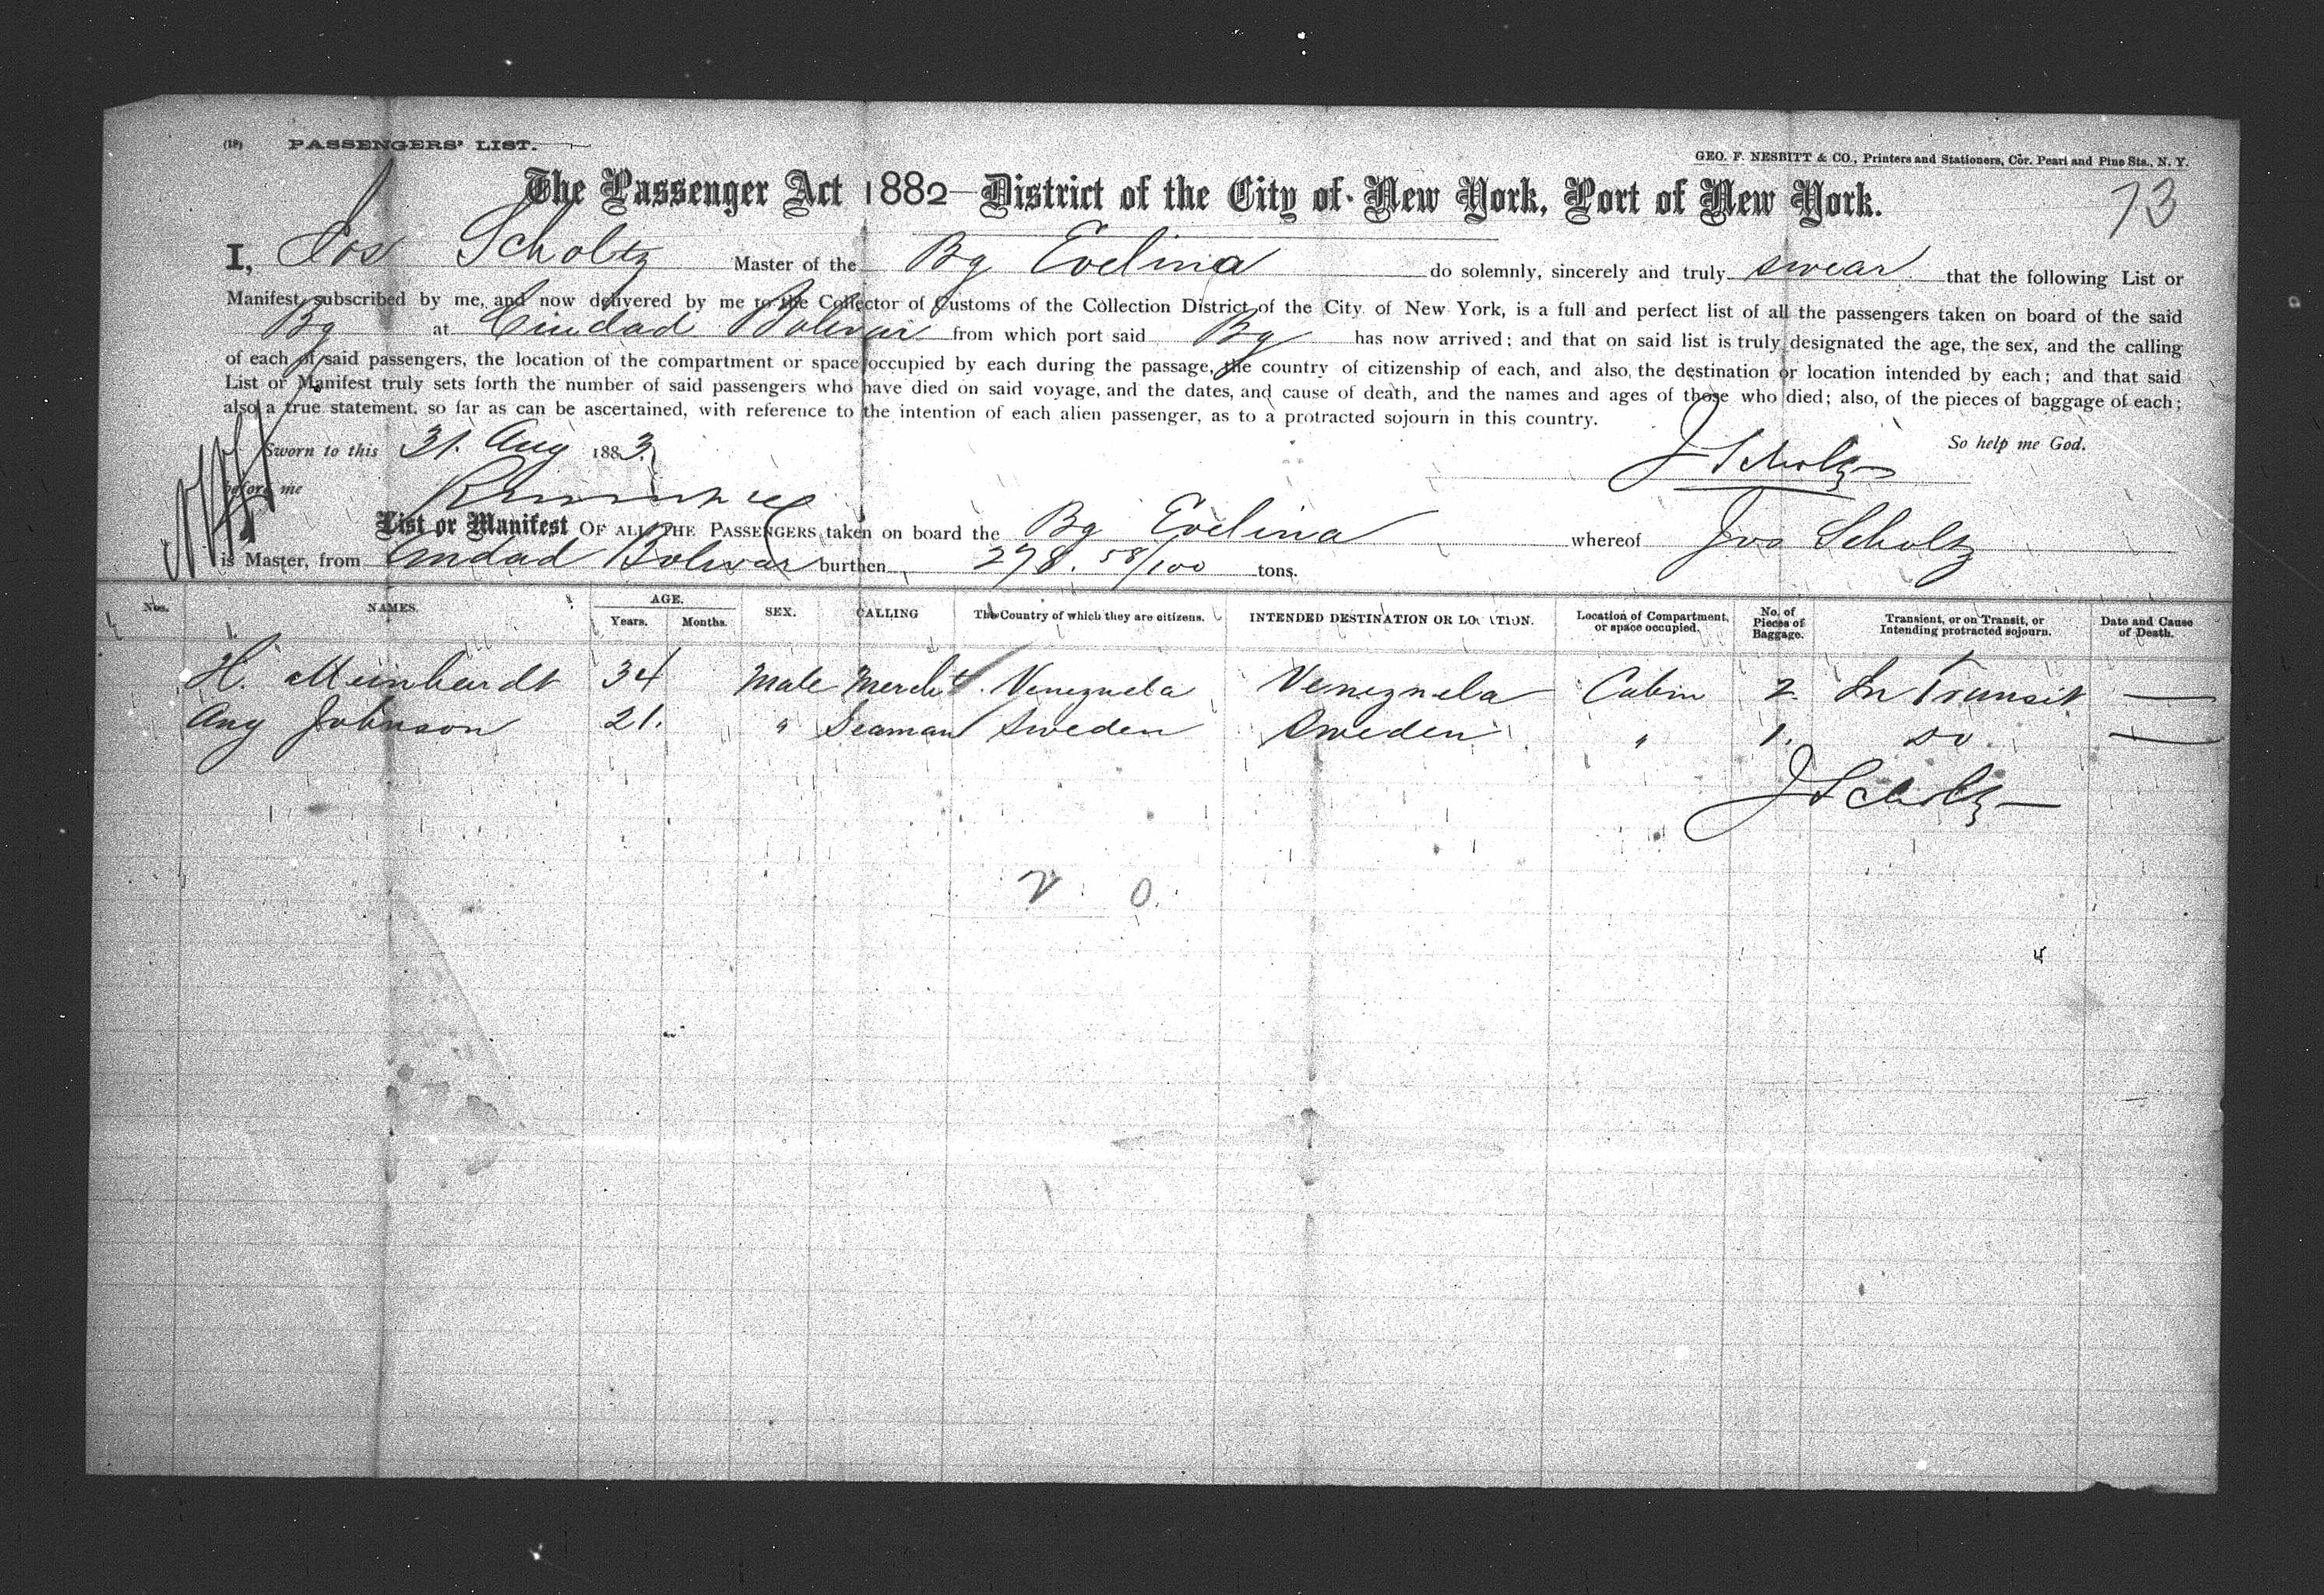 (19) PASSENGERS' LIST.
GEO. F. NESBITT & CO., Printers and Stationers, Cor. Pearl and Pine Sts., N. Y.
The Passenger Act 1882—District of the City of New York, Port of New York.
73
I, Jos Scholtz Master of the Bg Evelina do solemnly, sincerely and truly swear that the following List or
Manifest, subscribed by me, and now delivered by me to the Collector of Customs of the Collection District of the City of New York, is a full and perfect list of all the passengers taken on board of the said
Bg at Ciudad Bolivar from which port said Bg has now arrived; and that on said list is truly designated the age, the sex, and the calling
of each of said passengers, the location of the compartment or space occupied by each during the passage, the country of citizenship of each, and also, the destination or location intended by each; and that said
List or Manifest truly sets forth the number of said passengers who have died on said voyage, and the dates, and cause of death, and the names and ages of those who died; also, of the pieces of baggage of each;
also a true statement, so far as can be ascertained, with reference to the intention of each alien passenger, as to a protracted sojourn in this country.
Sworn to this 31. Aug 1883. J Scholtz So help me God.
before me
List or Manifest OF ALL THE PASSENGERS taken on board the Bg Evelina whereof Jos Scholtz
is Master, from Ciudad Bolivar burthen 278. 58/100 tons.
Nos. NAMES. AGE. Years. Months. SEX. CALLING The Country of which they are citizens. INTENDED DESTINATION OR LOCATION. Location of Compartment, or space occupied. No. of Pieces of Baggage. Transient, or on Transit, or Intending protracted sojourn. Date and Cause of Death.
H. Meinhardt 34 Male Mercht. Venezuela Venezuela Cabin 2 In Transit —
Aug Johnson 21. " Seaman Sweden Sweden " 1. do. —
J Scholtz
0.